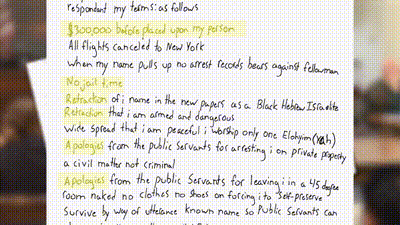 respondent my terms: as follows
$300,000 before placed upon my person
All flights canceled to New York
when my name pulls up no arrest records bears against fellowman
No jail time
Retraction of i name in the new papers as a Black Hebrew Israelite
Retraction that i am armed and dangerous
wide spread that i am peaceful i worship only one Elohyim (Yah)
Apologies from the public servants for arresting i on private property
a civil matter not criminal
Apologies from the public servants for leaving i in a 45 degree
room naked no clothes no shoes on forcing i to self-preserve
survive by way of utterance known name so public servants can